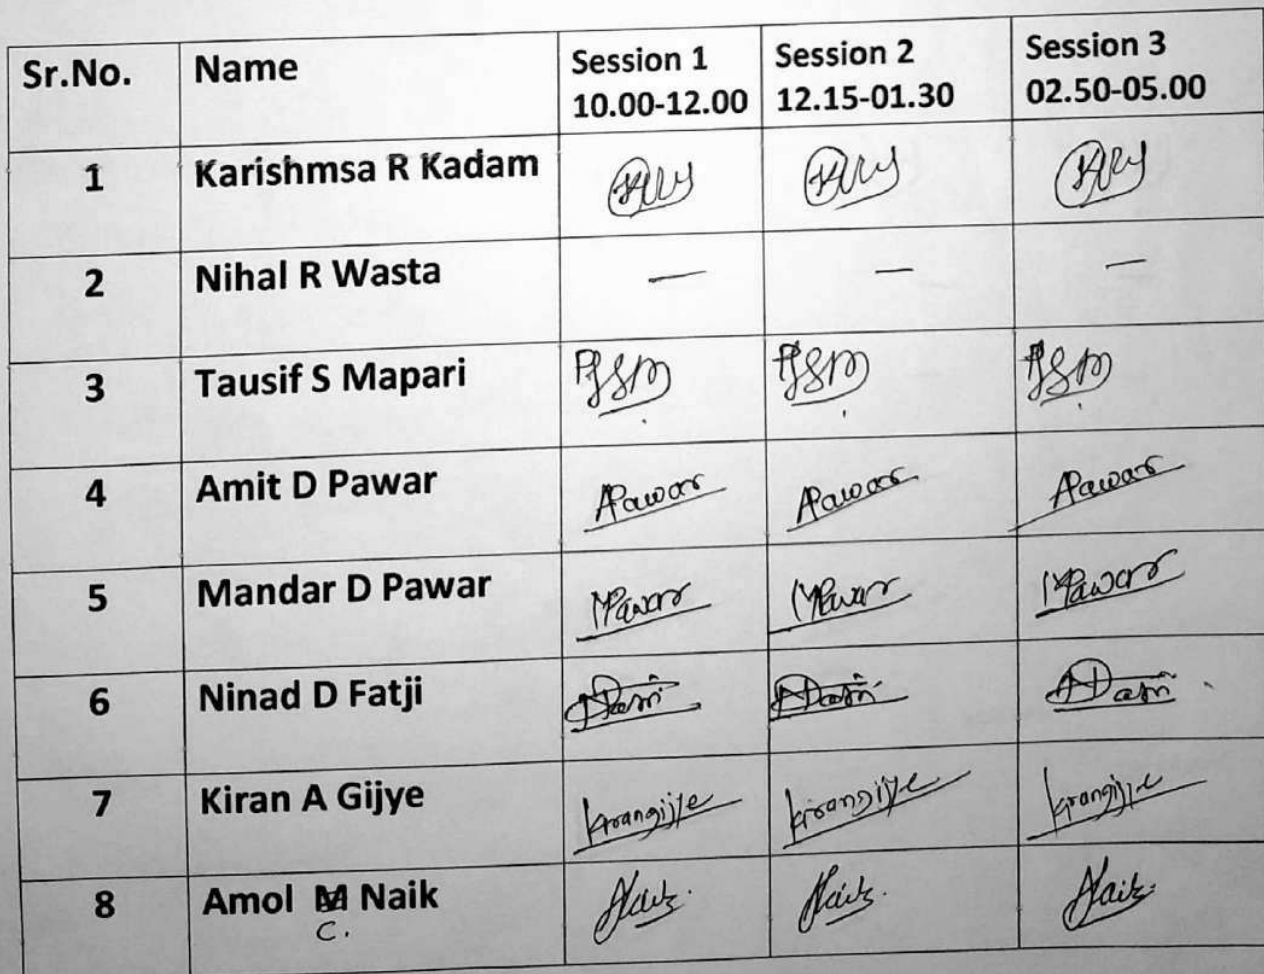 Sr.No. Name Session 1 Session 2 Session 3
10.00-12.00 12.15-01.30 02.50-05.00
1 Karishmsa R Kadam
2 Nihal R Wasta — — —
3 Tausif S Mapari
4 Amit D Pawar APawar APawar APawar
5 Mandar D Pawar MPawar MPawar MPawar
6 Ninad D Fatji
7 Kiran A Gijye kirangijye kirangijye kirangijye
8 Amol M Naik Naik. Naik. Naik.
C.